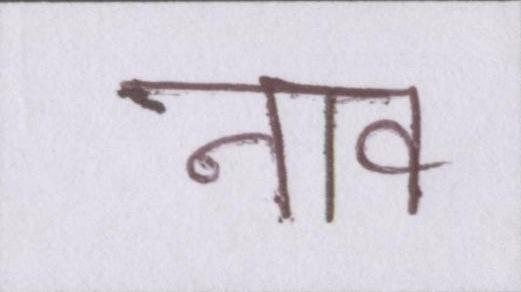 नाव